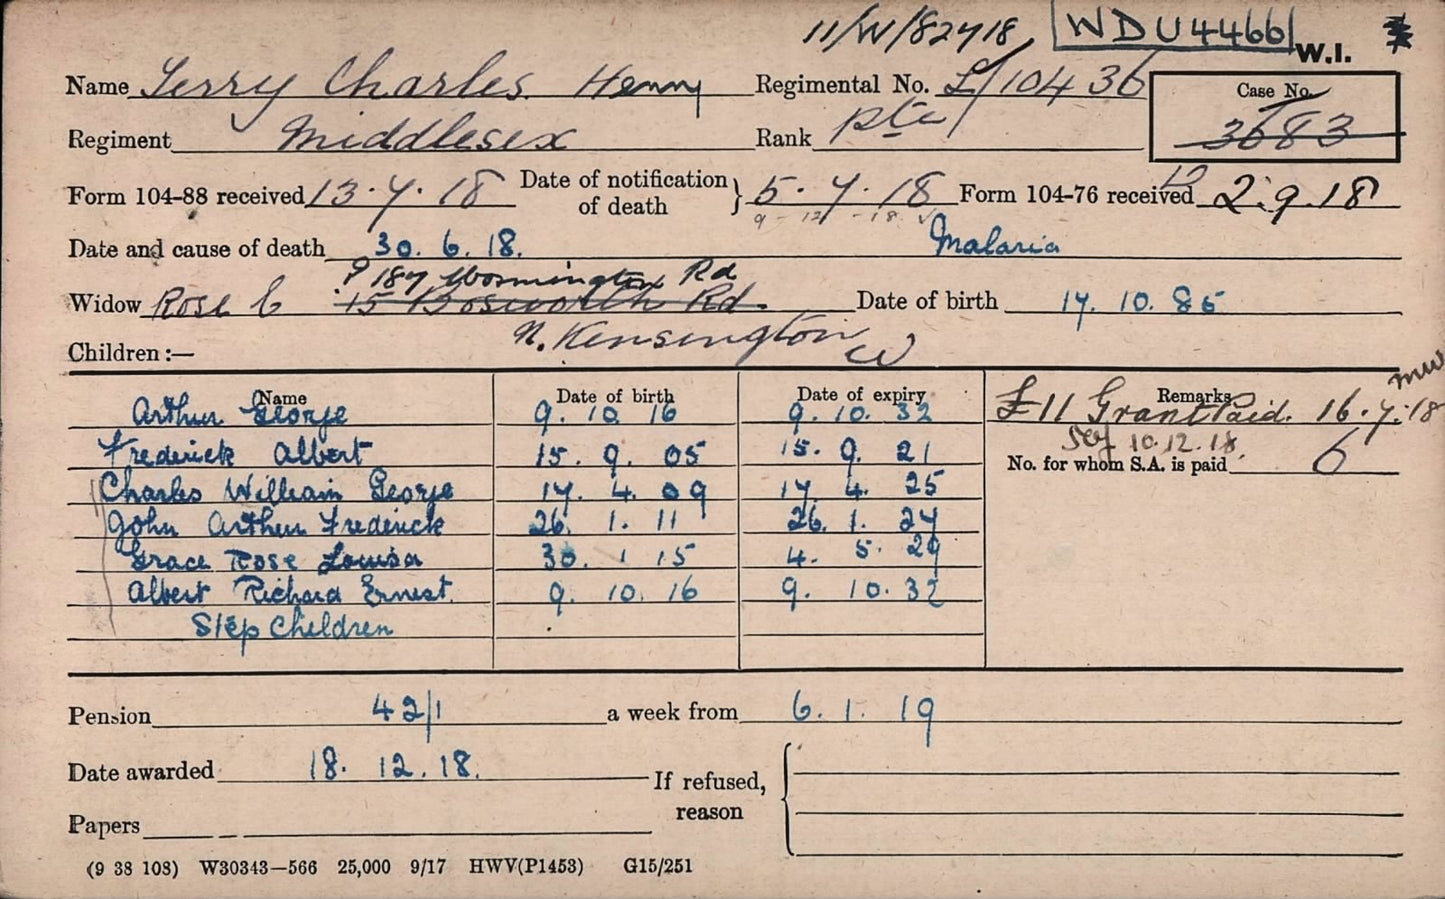 11/W/82718 WDU4466 W.I.
Name Terry Charles Henry Regimental No. L/10436 Case No.
Regiment Middlesex Rank Pte 3683
Form 104-88 received 13.7.18 Date of notification of death } 5.7.18 Form 104-76 received 2.9.18
9-12-18
Date and cause of death 30.6.18. Malaria
? 187 Wornington Rd
Widow Rose C 15 Bosworth Rd. Date of birth 17.10.85
N. Kensington W
Children :—
Name Date of birth Date of expiry Remarks
Arthur George 9.10.16 9.10.32 £11 Grant Paid. 16.7.18
10.12.18.
Frederick Albert 15.9.05 15.9.21 No. for whom S.A. is paid 6
Charles William George 17.4.09 17.4.25
John Arthur Frederick 26.1.11 26.1.27
Grace Rose Louisa 30.1.15 4.5.29
Albert Richard Ernest. 9.10.16 9.10.32
Step Children
Pension 42/1 a week from 6.1.19
Date awarded 18.12.18. If refused,
reason
Papers
(9 38 108) W30343—566 25,000 9/17 HWV(P1453) G15/251